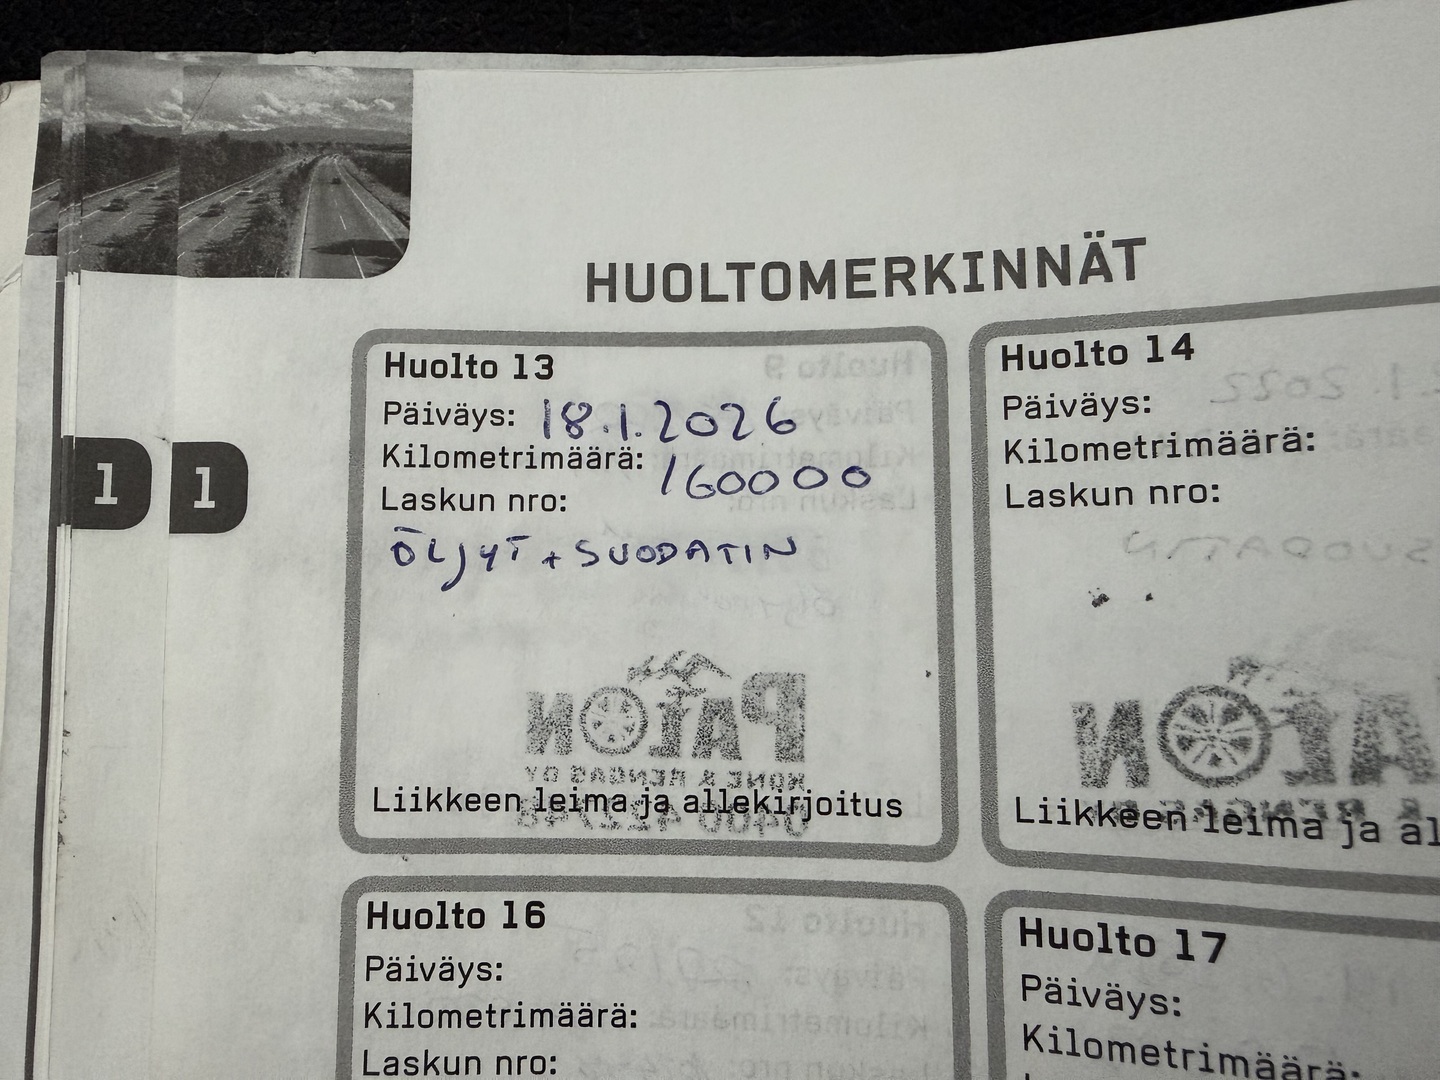 HUOLTOMERKINNÄT
Huolto 13
Päiväys: 18.1.2026
Kilometrimäärä: 160000
Laskun nro:
ÖLJYT + SUODATIN
PALTON
KONE & RENGAS OY
Liikkeen leima ja allekirjoitus
Huolto 14
Päiväys:
Kilometrimäärä:
Laskun nro:
Liikkeen leima ja al
Huolto 16
Päiväys:
Kilometrimäärä:
Laskun nro:
Huolto 17
Päiväys:
Kilometrimäärä:
1 1